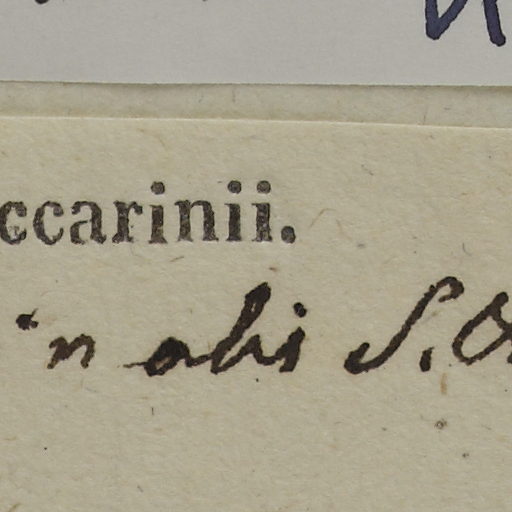 ccarinii.
in alis S.